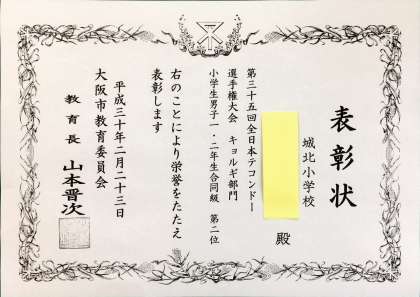 表彰状
城北小学校
殿
第三十五回全日本テコンドー
選手権大会 キョルギ部門
小学生男子一・二年生合同級 第二位
右のことにより栄誉をたたえ
表彰します
平成三十年二月二十三日
大阪市教育委員会
教育長 山本晋次